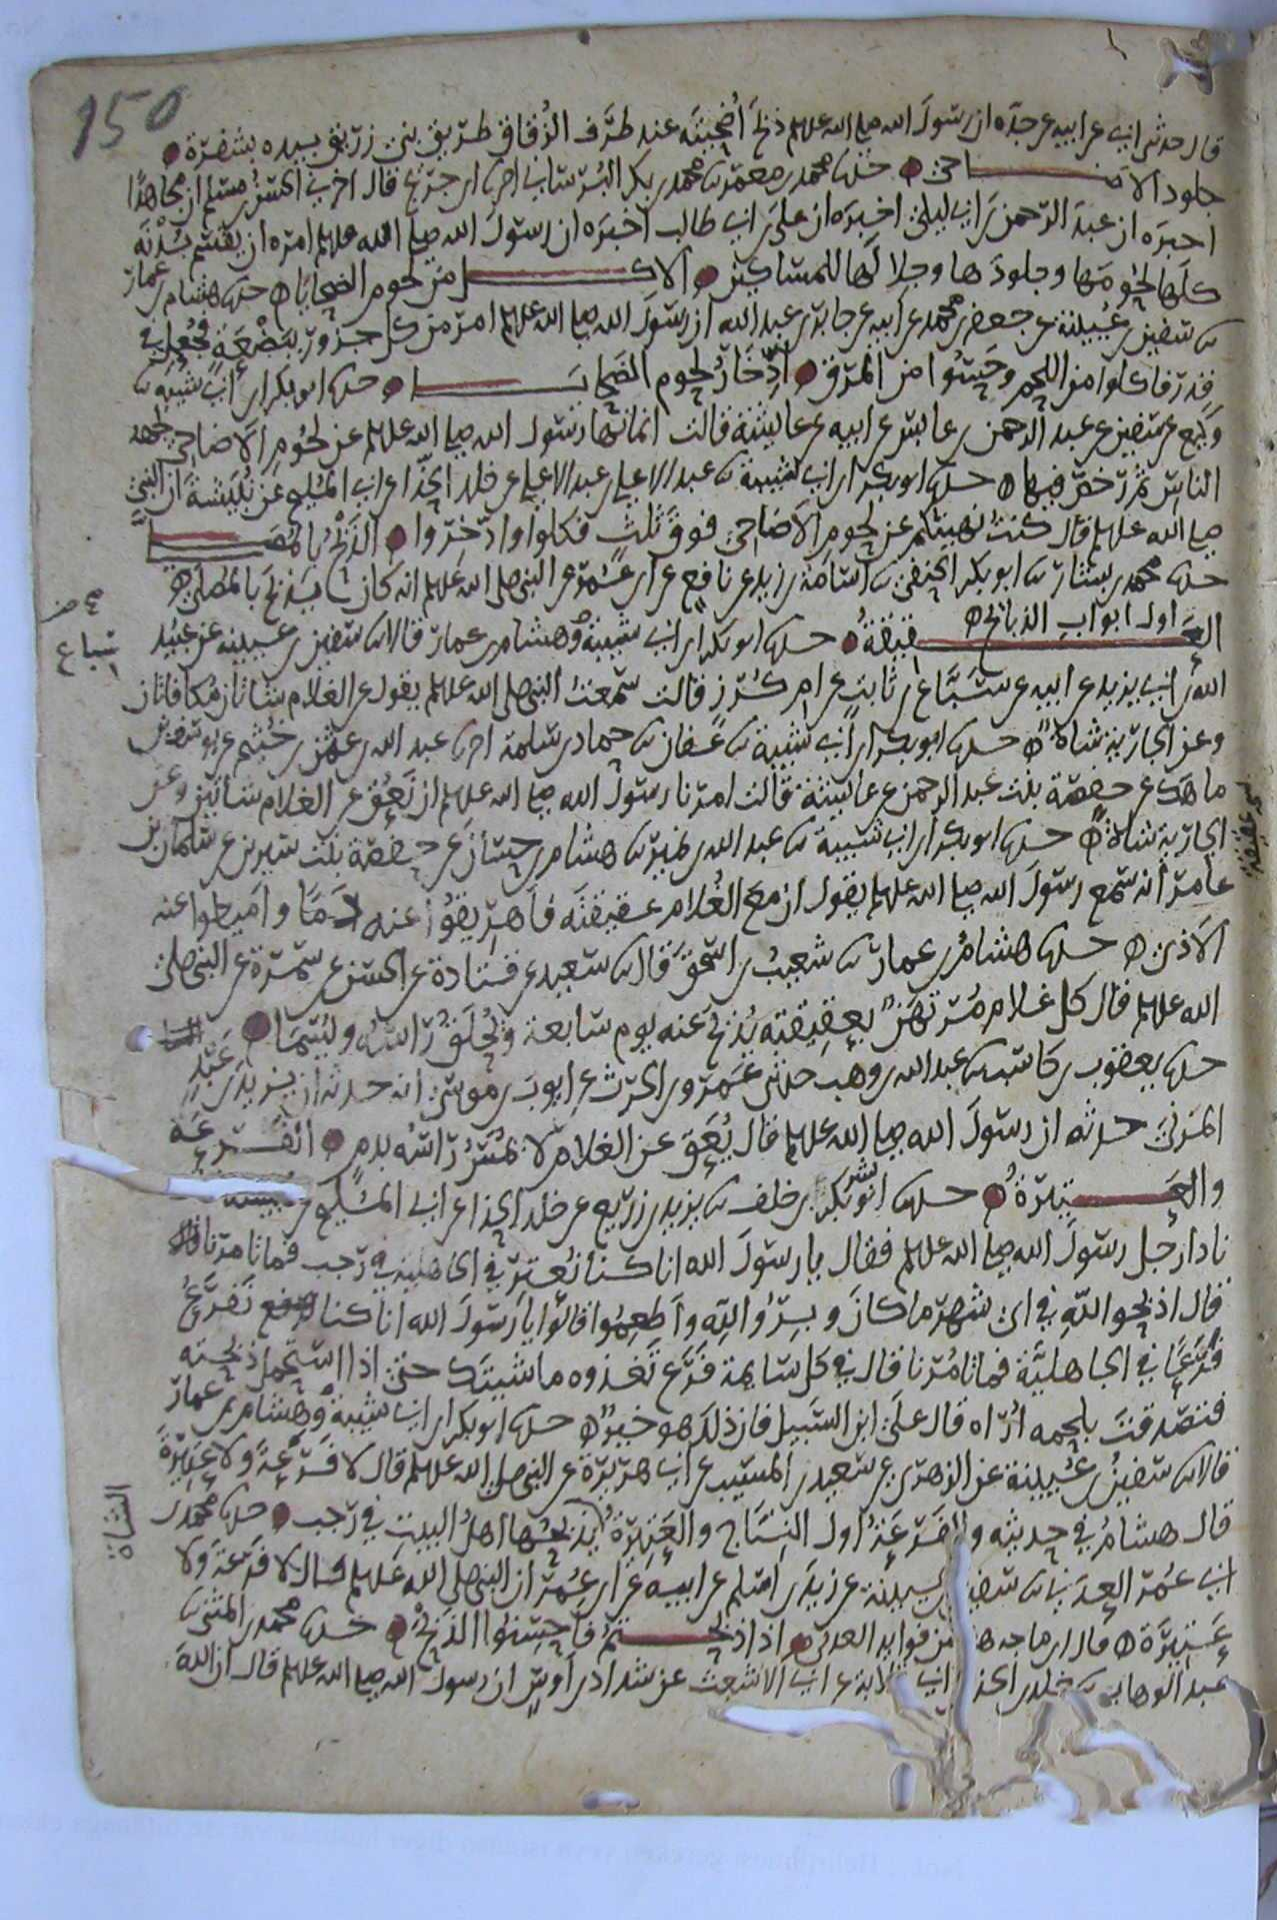 150
قال حدثنى ابى عن ابيه عن جده ان رسول الله صلى الله علىهلم ذبح أضحيته عند طرف الزقاق طريق بنى زريق بيده بشفرة
جلود الاضاحى حدثنا محمد بن معمر نا محمد بن بكر البرسانى انا ابن جريج قال اخبرنى الحسن بن مسلم ان مجاهدا
اخبره ان عبد الرحمن بن ابى ليلى اخبره ان على بن ابى طالب اخبره ان رسول الله صلى الله علىهلم امره ان يقسم بدنه
كلها لحومها وجلودها وجلالها للمساكين الاكل من لحوم الضحايا حدثنا هشام بن عمار
نا سفين بن عيينة عن جعفر بن محمد عن ابيه عن جابر بن عبد الله ان رسول الله صلى الله علىهلم امر من كل جزور ببضعة فجعل فى
قدر فاكلوا من اللحم وحسوا من المرق ادخار لحوم الضحايا حدثنا ابو بكر بن ابى شيبه نا
وكيع عن سفين عن عبد الرحمن بن عابس عن ابيه عن عايشة قالت انما نها رسول الله صلى الله علىهلم عن لحوم الاضاحى لجهد
الناس ثم رخص فيها حدثنا ابو بكر بن ابى شيبة نا عبد الاعلى بن عبد الاعلى عن خلد الحذا عن ابى المليح عن نبيشة ان النبى
صلى الله علىهلم قال كنت نهيتكم عن لحوم الاضاحى فوق ثلث فكلوا وادخروا الذبح بالمصلى
حدثنا محمد بن بشار نا ابو بكر الحنفى نا اسامة بن زيد عن نافع عن ابن عمر عن النبى صلى الله علىهلم انه كان يذبح بالمصلى
اول ابواب الذبائح
العقيقة حدثنا ابو بكر بن ابى شيبة وهشام بن عمار قالا نا سفين بن عيينه عن عبيد
سباع
الله بن ابى يزيد عن ابيه عن سباع بن ثابت عن ام كرز قالت سمعت النبى صلى الله علىهلم يقول عن الغلام شاتان مكافاتان
وعن الجارية شاة حدثنا ابو بكر بن ابى شيبة نا عفان نا حماد بن سلمة انا عبد الله بن عثمن بن خثيم عن يوسف بن
ماهك عن حفصة بنت عبد الرحمن عن عايشة قالت امرنا رسول الله صلى الله علىهلم ان نعق عن الغلام شاتين وعن
الجارية شاة حدثنا ابو بكر بن ابى شيبة نا عبد الله بن نمير نا هشام بن حسان عن حفصة بنت سيرين عن سلمان بن
عامر انه سمع رسول الله صلى الله علىهلم يقول ان مع الغلام عقيقته فاهريقوا عنه دما واميطوا عنه
الاذى حدثنا هشام بن عمار نا شعيب بن اسحق قال نا سعيد عن قتادة عن الحسن عن سمرة عن النبى صلى
الله علىهلم قال كل غلام مرتهن بعقيقته يذبح عنه يوم سابعه ويحلق راسه ويسما
حدثنا يعقوب بن كاسب نا عبد الله بن وهب حدثنى عمرو بن الحرث عن ايوب بن موسى انه حدثه ان يزيد بن عبد
المزنى حدثه ان رسول الله صلى الله علىهلم قال يعق عن الغلام لا يمس راسه بدم الفرعة
والعتيرة حدثنا ابو بشر بكر بن خلف نا يزيد بن زريع عن خلد الحذا عن ابى المليح عن نبيشة
نادا رجل رسول الله صلى الله علىهلم فقال يا رسول الله انا كنا نعتر فى الجاهلية فى رجب فما تامرنا
قال اذبحوا لله فى اى شهر ما كان وبروا لله واطعموا قالوا يا رسول الله انا كنا نفرع
فرعا فى الجاهلية فما تامرنا قال فى كل سايمة فرع تغذوه ماشيتك حتى اذا استحمل ذبحته
فتصدقت بلحمه اراه قال على ابن السبيل فان ذلك هو خير حدثنا ابو بكر بن ابى شيبة وهشام بن عمار
قالا نا سفين بن عيينة عن الزهرى عن سعيد بن المسيب عن ابى هريرة عن النبى صلى الله علىهلم قال لا فرعة ولا عتيرة
قال هشام فى حديثه والفرعة اول النتاج والعتيرة يذبحها اهل البيت فى رجب حدثنا محمد بن
الشاة
ابى عمر العدنى نا سفين بن عيينة عن زيد بن اسلم عن ابيه عن ابن عمر ان النبى صلى الله علىهلم قال لا فرعة ولا
عتيرة قال ابن ماجه هذا من فوايد العدنى اذا ذبحتم فاحسنوا الذبح حدثنا محمد بن المثنى نا
عبد الوهاب نا خلد الحذا عن ابى قلابة عن ابى الاشعث عن شداد بن اوس ان رسول الله صلى الله علىهلم قال ان الله